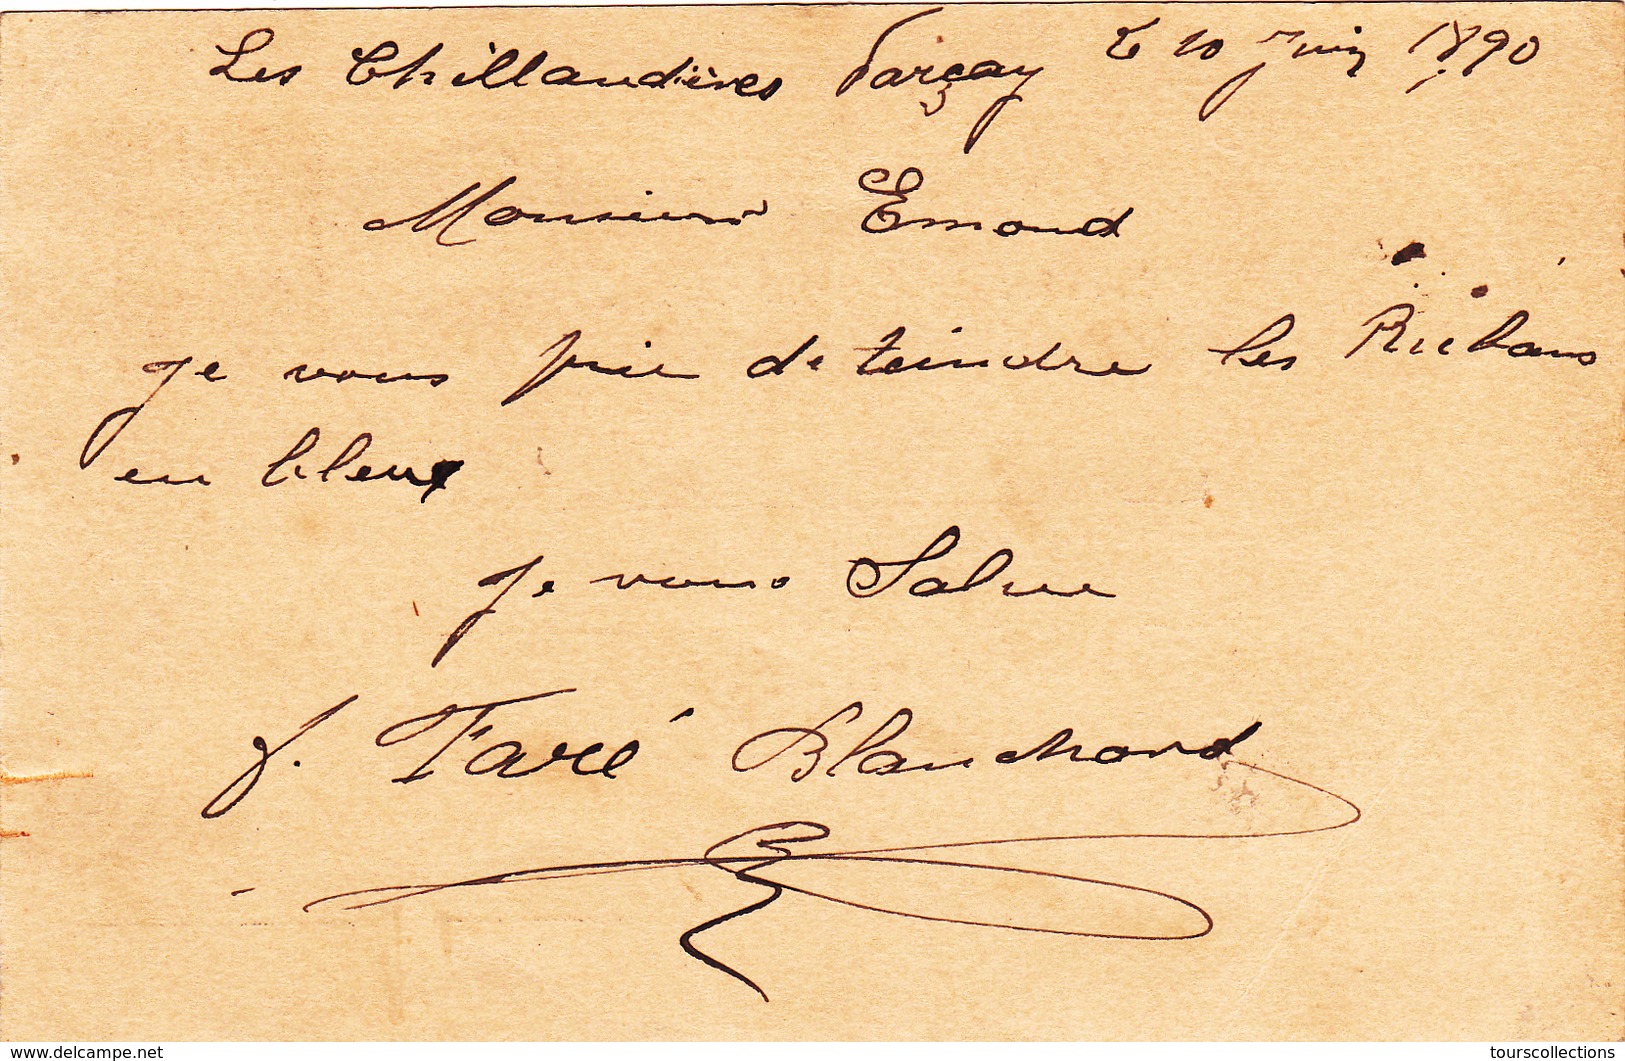 Les Chillaudières Parçay le 10 Juin 1890
Monsieur Emond
Je vous prie de teindre les Rubans
en bleux
Je vous Salue
f. Favré Blanchard
www.delcampe.net
tourscollections